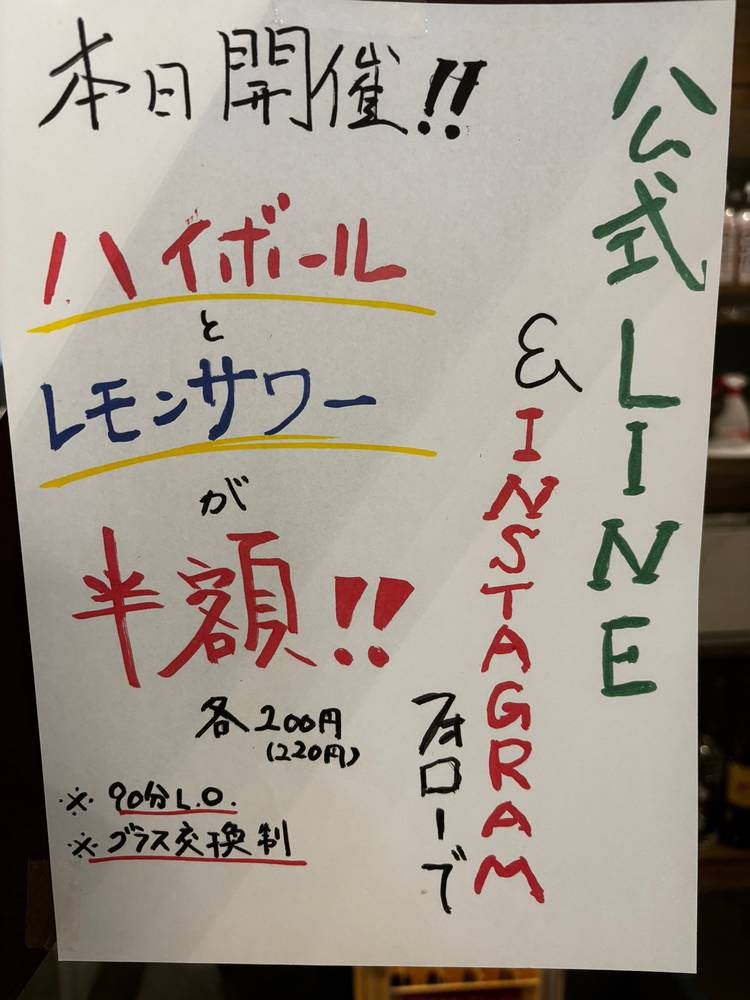 本日開催!!
公式LINE
&INSTAGRAM
フォローで
ハイボール
と
レモンサワー
が
半額!!
各200円
(220円)
※90分L.O.
※グラス交換制